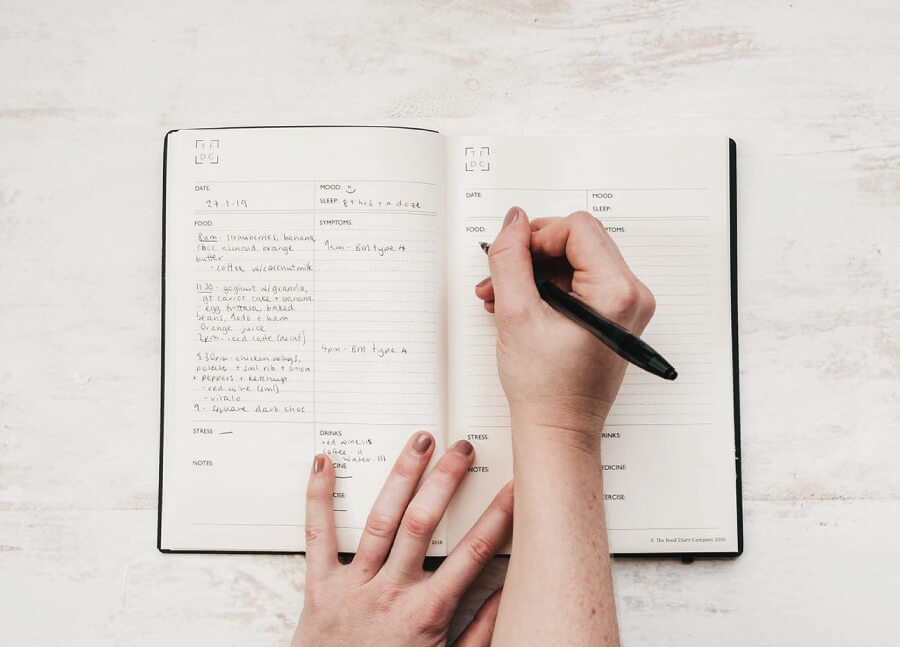 TF
DC
DATE:
27.1.19
MOOD:
SLEEP: 8+hrs
FOOD:
8am - strawberries, banana,
almond orange
butter
- coffee w/coconut milk
11.30 - yoghurt w/granola,
gf carrot cake + banana
- egg frittata, baked
beans, + ham
orange juice
2pm - iced latte (decaf)
5.30pm - chicken wings,
potato + sml rib + onion
+ peppers + ketchup
- red wine (sml)
9 - square dark choc
SYMPTOMS:
9am - BM type 4
4pm - BM type 4
STRESS: —
NOTES:
DRINKS:
red wine
coffee - II
water - III
CINE:
CISE:
2016
TF
DC
DATE:
MOOD:
SLEEP:
FOOD:
YMPTOMS:
STRESS:
NOTES:
RINKS:
EDICINE:
ERCISE:
© The Food Diary Company 2016